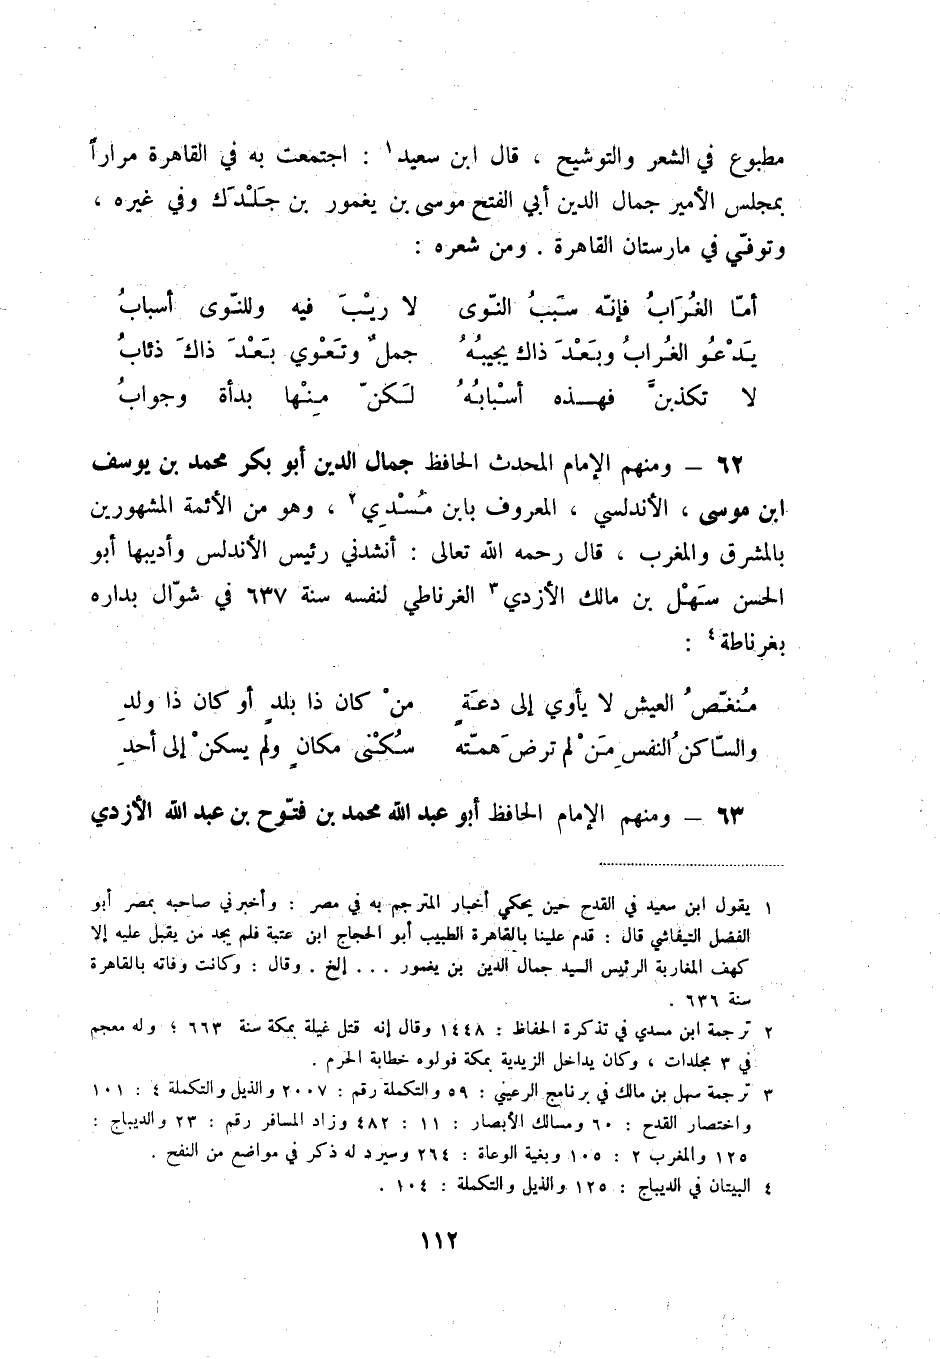 مطبوع في الشعر والتوشيح ، قال ابن سعيد١ : اجتمعت به في القاهرة مراراً
بمجلس الأمير جمال الدين أبي الفتح موسى بن يغمور بن جَلْدَك وفي غيره ،
وتوفّي في مارستان القاهرة . ومن شعره :
أمّا الغُرَابُ فإنّه سَبَبُ النّوى لا ريْبَ فيه وللنّوى أسبابُ
يَدْعُو الغُرابُ وبَعْدَ ذاك يجيبُهُ جملٌ وتَعْوي بَعْدَ ذاكَ ذئابُ
لا تكذبنَّ فهـذه أسْبابُهُ لَكنّ مِنْها بدأة وجوابُ
٦٢ – ومنهم الإمام المحدث الحافظ جمال الدين أبو بكر محمد بن يوسف
ابن موسى ، الأندلسي ، المعروف بابن مُسْدِي٢ ، وهو من الأئمة المشهورين
بالمشرق والمغرب ، قال رحمه الله تعالى : أنشدني رئيس الأندلس وأديبها أبو
الحسن سَهْل بن مالك الأزدي٣ الغرناطي لنفسه سنة ٦٣٧ في شوّال بداره
بغرناطة٤ :
مُنغّصُ العيش لا يأوي إلى دعَةٍ منْ كان ذا بلدٍ أو كان ذا ولدِ
والسّاكنُ النفسِ مَنْ لم ترضَ همتّه سُكْنى مكانٍ ولم يسكنْ إلى أحدِ
٦٣ – ومنهم الإمام الحافظ أبو عبد الله محمد بن فتّوح بن عبد الله الأزدي
١ يقول ابن سعيد في القدح حين يحكي أخبار المترجم به في مصر : وأخبرني صاحبه بمصر أبو
الفضل التيفاشي قال : قدم علينا بالقاهرة الطبيب أبو الحجاج ابن عتبة فلم يجد من يقبل عليه إلا
كهف المغاربة الرئيس السيد جمال الدين بن يغمور ... إلخ . وقال : وكانت وفاته بالقاهرة
سنة ٦٣٦ .
٢ ترجمة ابن مسدي في تذكرة الحفاظ : ١٤٤٨ وقال إنه قتل غيلة بمكة سنة ٦٦٣ ؛ وله معجم
في ٣ مجلدات ، وكان يداخل الزيدية بمكة فولوه خطابة الحرم .
٣ ترجمة سهل بن مالك في برنامج الرعيني : ٥٩ والتكملة رقم : ٢٠٠٧ والذيل والتكملة ٤ : ١٠١
واختصار القدح : ٦٠ ومسالك الأبصار : ١١ : ٤٨٢ وزاد المسافر رقم : ٢٣ والديباج :
١٢٥ والمغرب ٢ : ١٠٥ وبغية الوعاة : ٢٦٤ وسيرد له ذكر في مواضع من النفح .
٤ البيتان في الديباج : ١٢٥ والذيل والتكملة : ١٠٤ .
١١٢